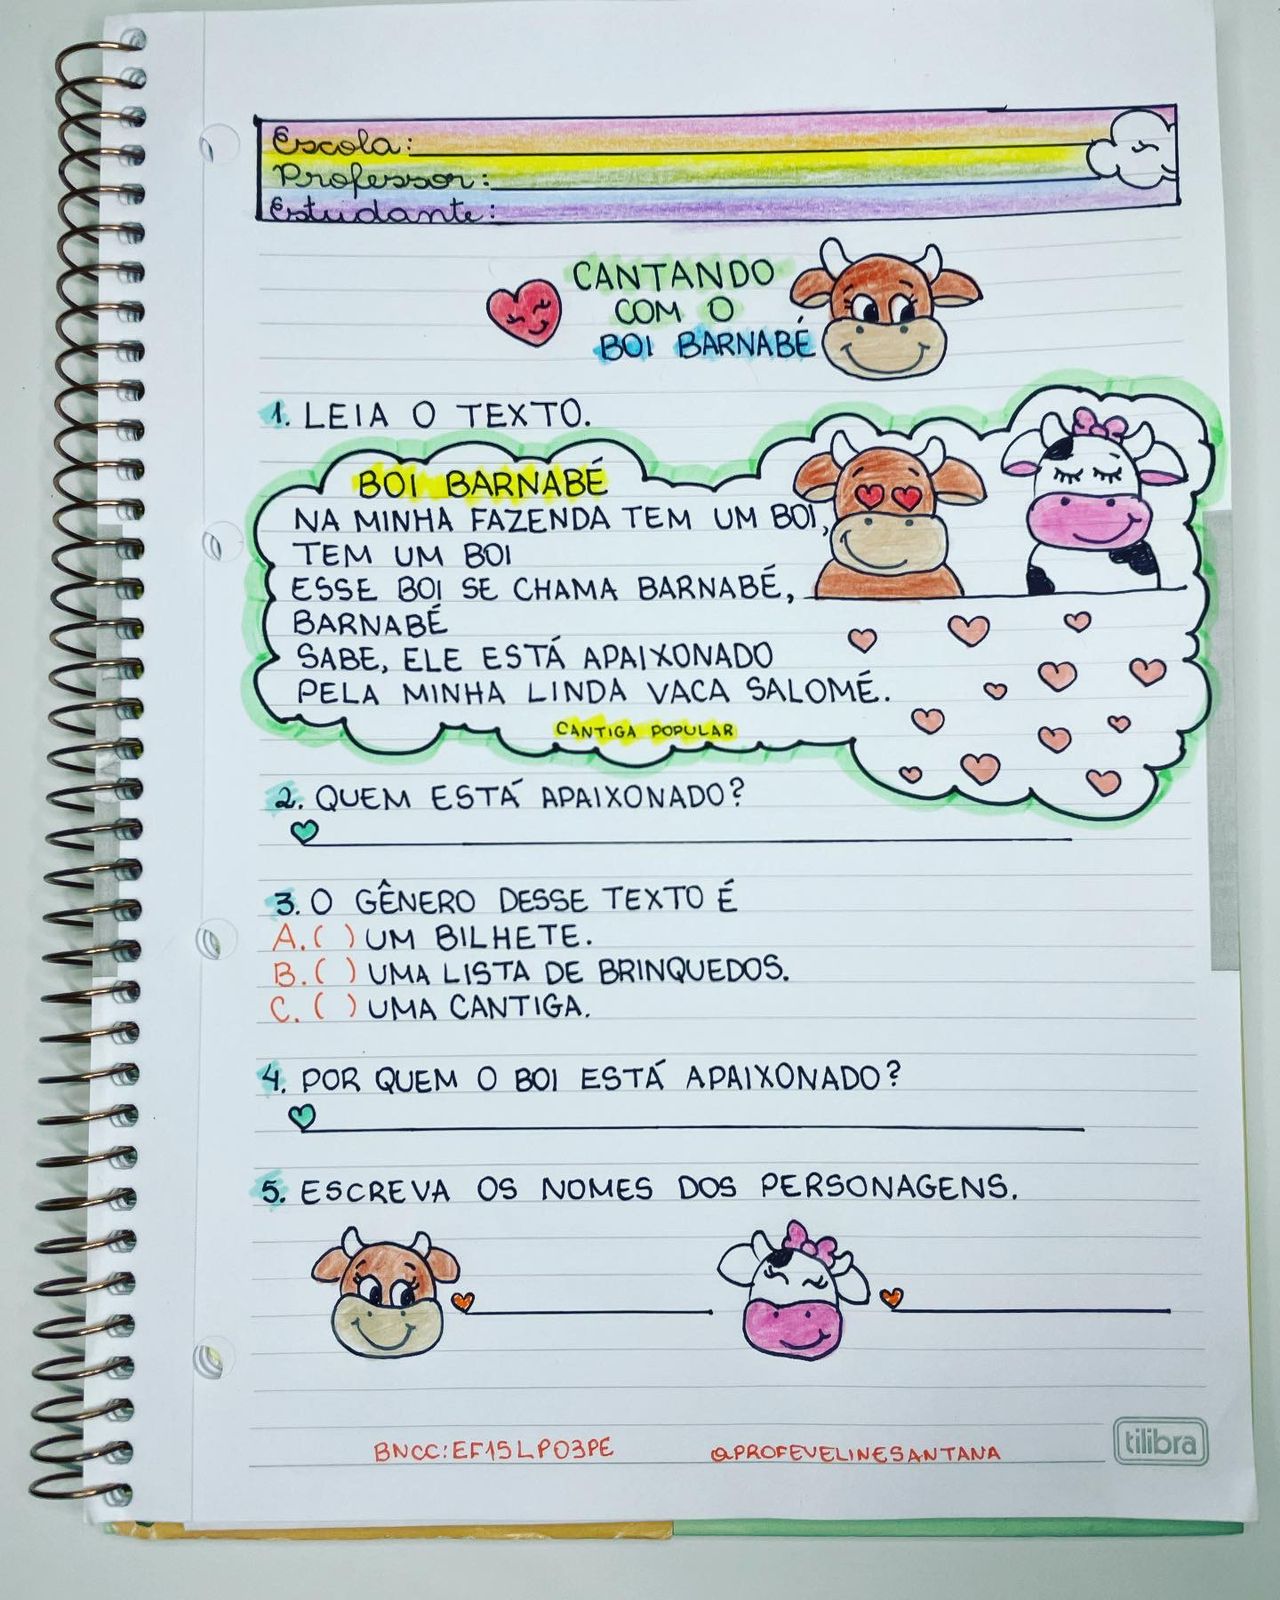 Escola:
Professor:
Estudante:
CANTANDO
COM O
BOI BARNABÉ
1. LEIA O TEXTO.
BOI BARNABÉ
NA MINHA FAZENDA TEM UM BOI,
TEM UM BOI
ESSE BOI SE CHAMA BARNABÉ,
BARNABÉ
SABE, ELE ESTÁ APAIXONADO
PELA MINHA LINDA VACA SALOMÉ.
CANTIGA POPULAR
2. QUEM ESTÁ APAIXONADO?
3. O GÊNERO DESSE TEXTO É
A. ( ) UM BILHETE.
B. ( ) UMA LISTA DE BRINQUEDOS.
C. ( ) UMA CANTIGA.
4. POR QUEM O BOI ESTÁ APAIXONADO?
5. ESCREVA OS NOMES DOS PERSONAGENS.
BNCC:EF15LP03PE @PROFEVELINESANTANA
tilibra